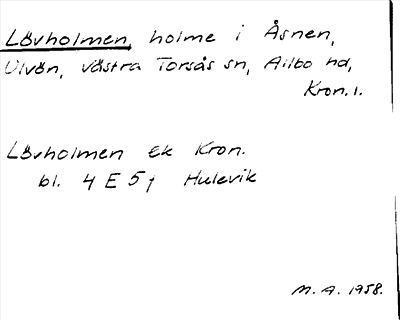 Lövholmen, holme i Åsnen,
Ulvön, västra Torsås sn, Allbo hd,
Kron. l.
Lövholmen Ek Kron.
bl. 4 E 5 f Hulevik
M. A. 1958.